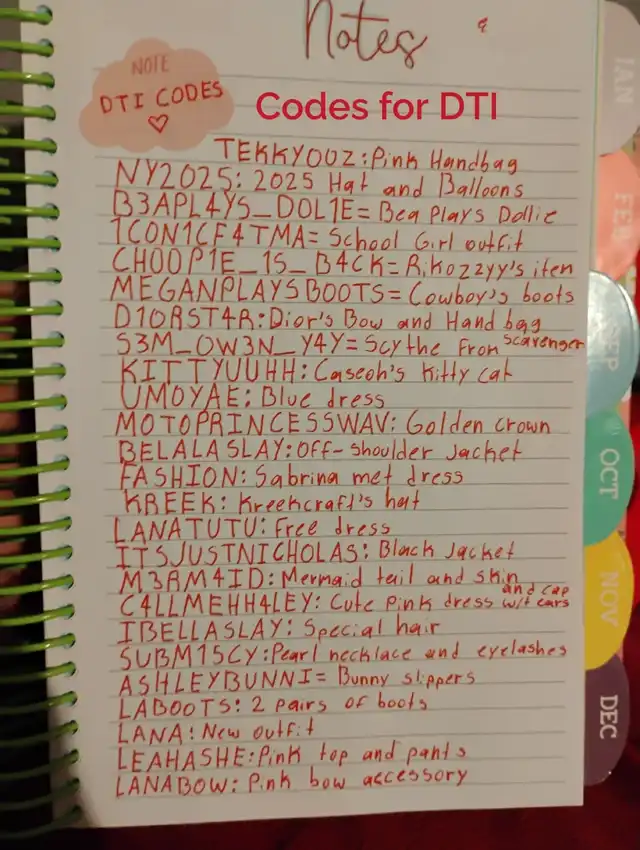 Notes
NOTE
DTI CODES
Codes for DTI
TEKKYOOZ:Pink Handbag
NY2025: 2025 Hat and Balloons
B3APL4YS_DOL1E= Bea Plays Dollie
1CON1CF4TMA= School Girl outfit
CH00P1E_1S_B4CK= Rikozzyy's item
MEGANPLAYSBOOTS= Cowboy's boots
D1ORST4R: Dior's Bow and Hand bag
S3M_OW3N_Y4Y= Scythe From Scavenger
KITTYUUHH: Caseoh's Kitty cat
UMOYAE: Blue dress
MOTOPRINCESSWAV: Golden crown
BELALASLAY: Off-shoulder Jacket
FASHION: Sabrina met dress
KREEK: Kreekcraft's hat
LANATUTU: Free dress
ITSJUSTNICHOLAS: Black Jacket
M3RM4ID: Mermaid tail and skin
C4LLMEHH4LEY: Cute pink dress and cap w/t ears
IBELLASLAY: Special hair
SUBM15CY: Pearl necklace and eyelashes
ASHLEYBUNNI= Bunny slippers
LABOOTS: 2 pairs of boots
LANA: New outfit
LEAHASHE: Pink top and pants
LANABOW: Pink bow accessory
JAN
FEB
SEP
OCT
NOV
DEC